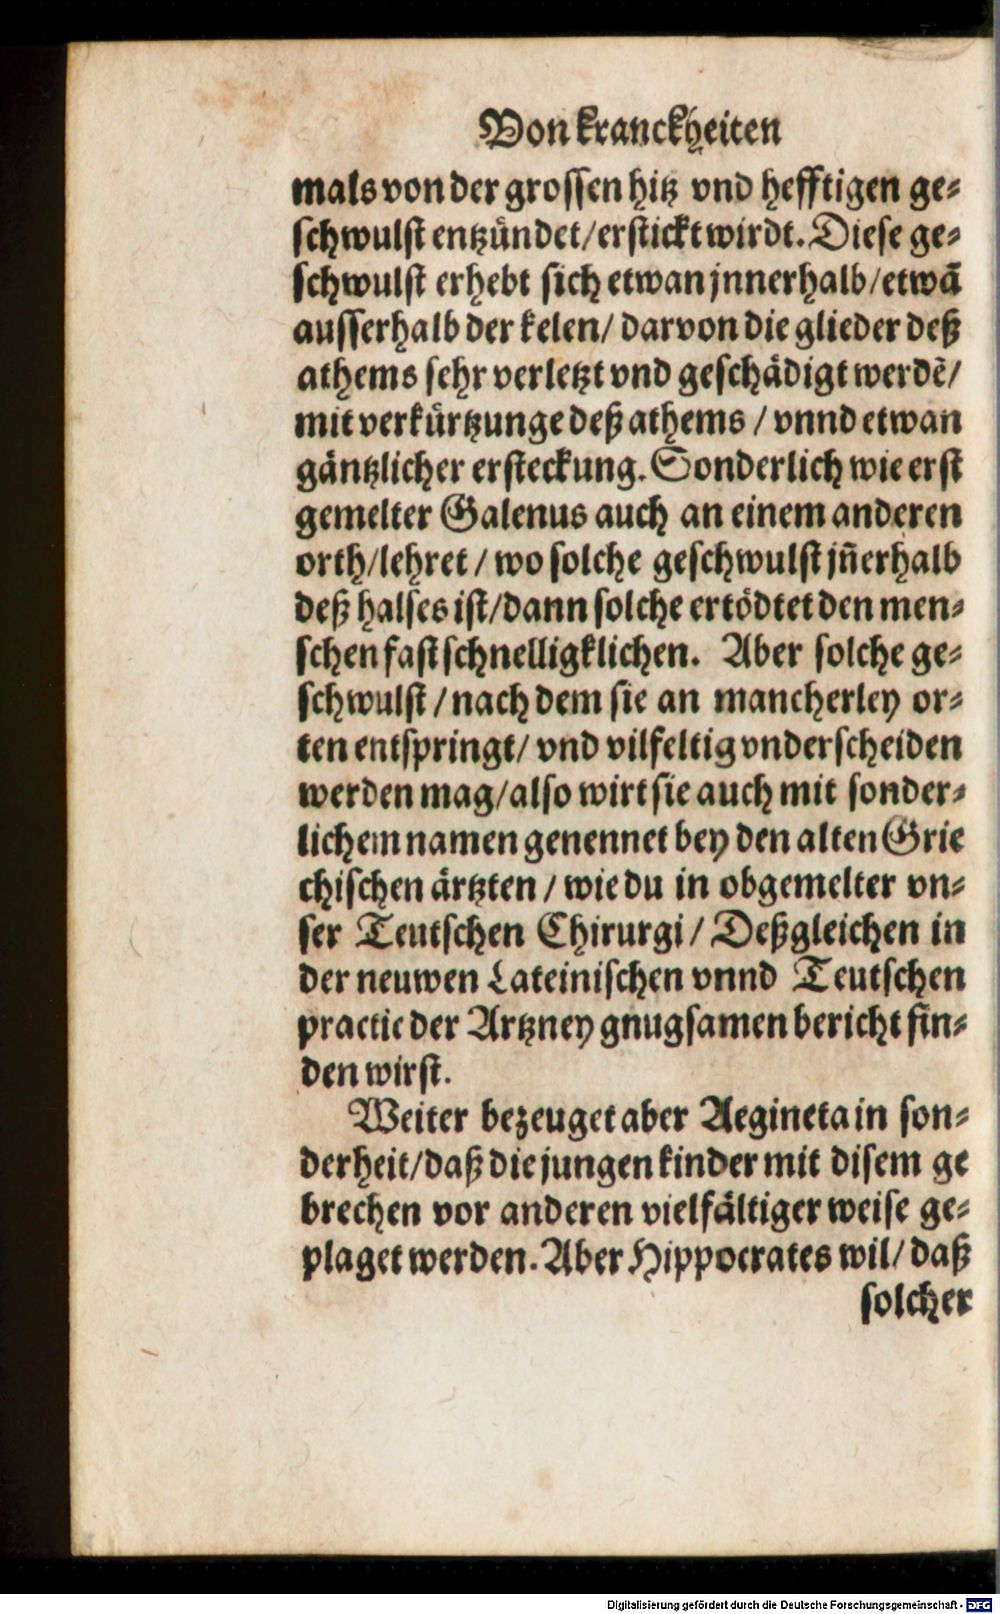 Von kranckheiten
mals von der grossen hitz vnd hefftigen ge⸗
schwulst entzündet/ersticktwirdt. Diese ge⸗
schwulst erhebt sich etwan jnnerhalb/etwã
ausserhalb der kelen/ darvon die glieder deß
athems sehr verletzt vnd geschädigt werdẽ/
mit verkürtzunge deß athems / vnnd etwan
gäntzlicher ersteckung. Sonderlich wie erst
gemelter Galenus auch an einem anderen
orth/lehret / wo solche geschwulst jñerhalb
deß halses ist/dann solche ertödtet den men⸗
schen fast schnelligklichen. Aber solche ge⸗
schwulst / nach dem sie an mancherley or⸗
ten entspringt/ vnd vilfeltig vnderscheiden
werden mag/also wirt sie auch mit sonder⸗
lichem namen genennet bey den alten Grie
chischen ärtzten / wie du in obgemelter vn⸗
ser Teutschen Chirurgi/ Deßgleichen in
der neuwen Lateinischen vnnd Teutschen
practic der Artzney gnugsamen bericht fin⸗
den wirst.
Weiter bezeuget aber Aegineta in son⸗
derheit/daß die jungen kinder mit disem ge
brechen vor anderen vielfältiger weise ge⸗
plaget werden. Aber Hippocrates wil/ daß
solcher
Digitalisierung gefördert durch die Deutsche Forschungsgemeinschaft - DFG